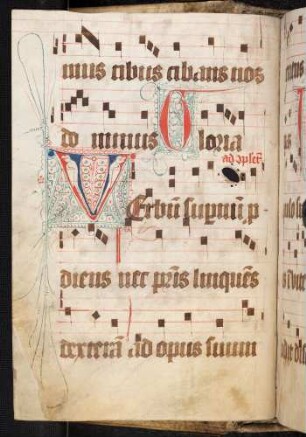 mus cibus cibans nos
do minus Gloria
ad opser̄
VErbū supnū p
diens nec pr̄is linquēs
dexterā ad opus suum